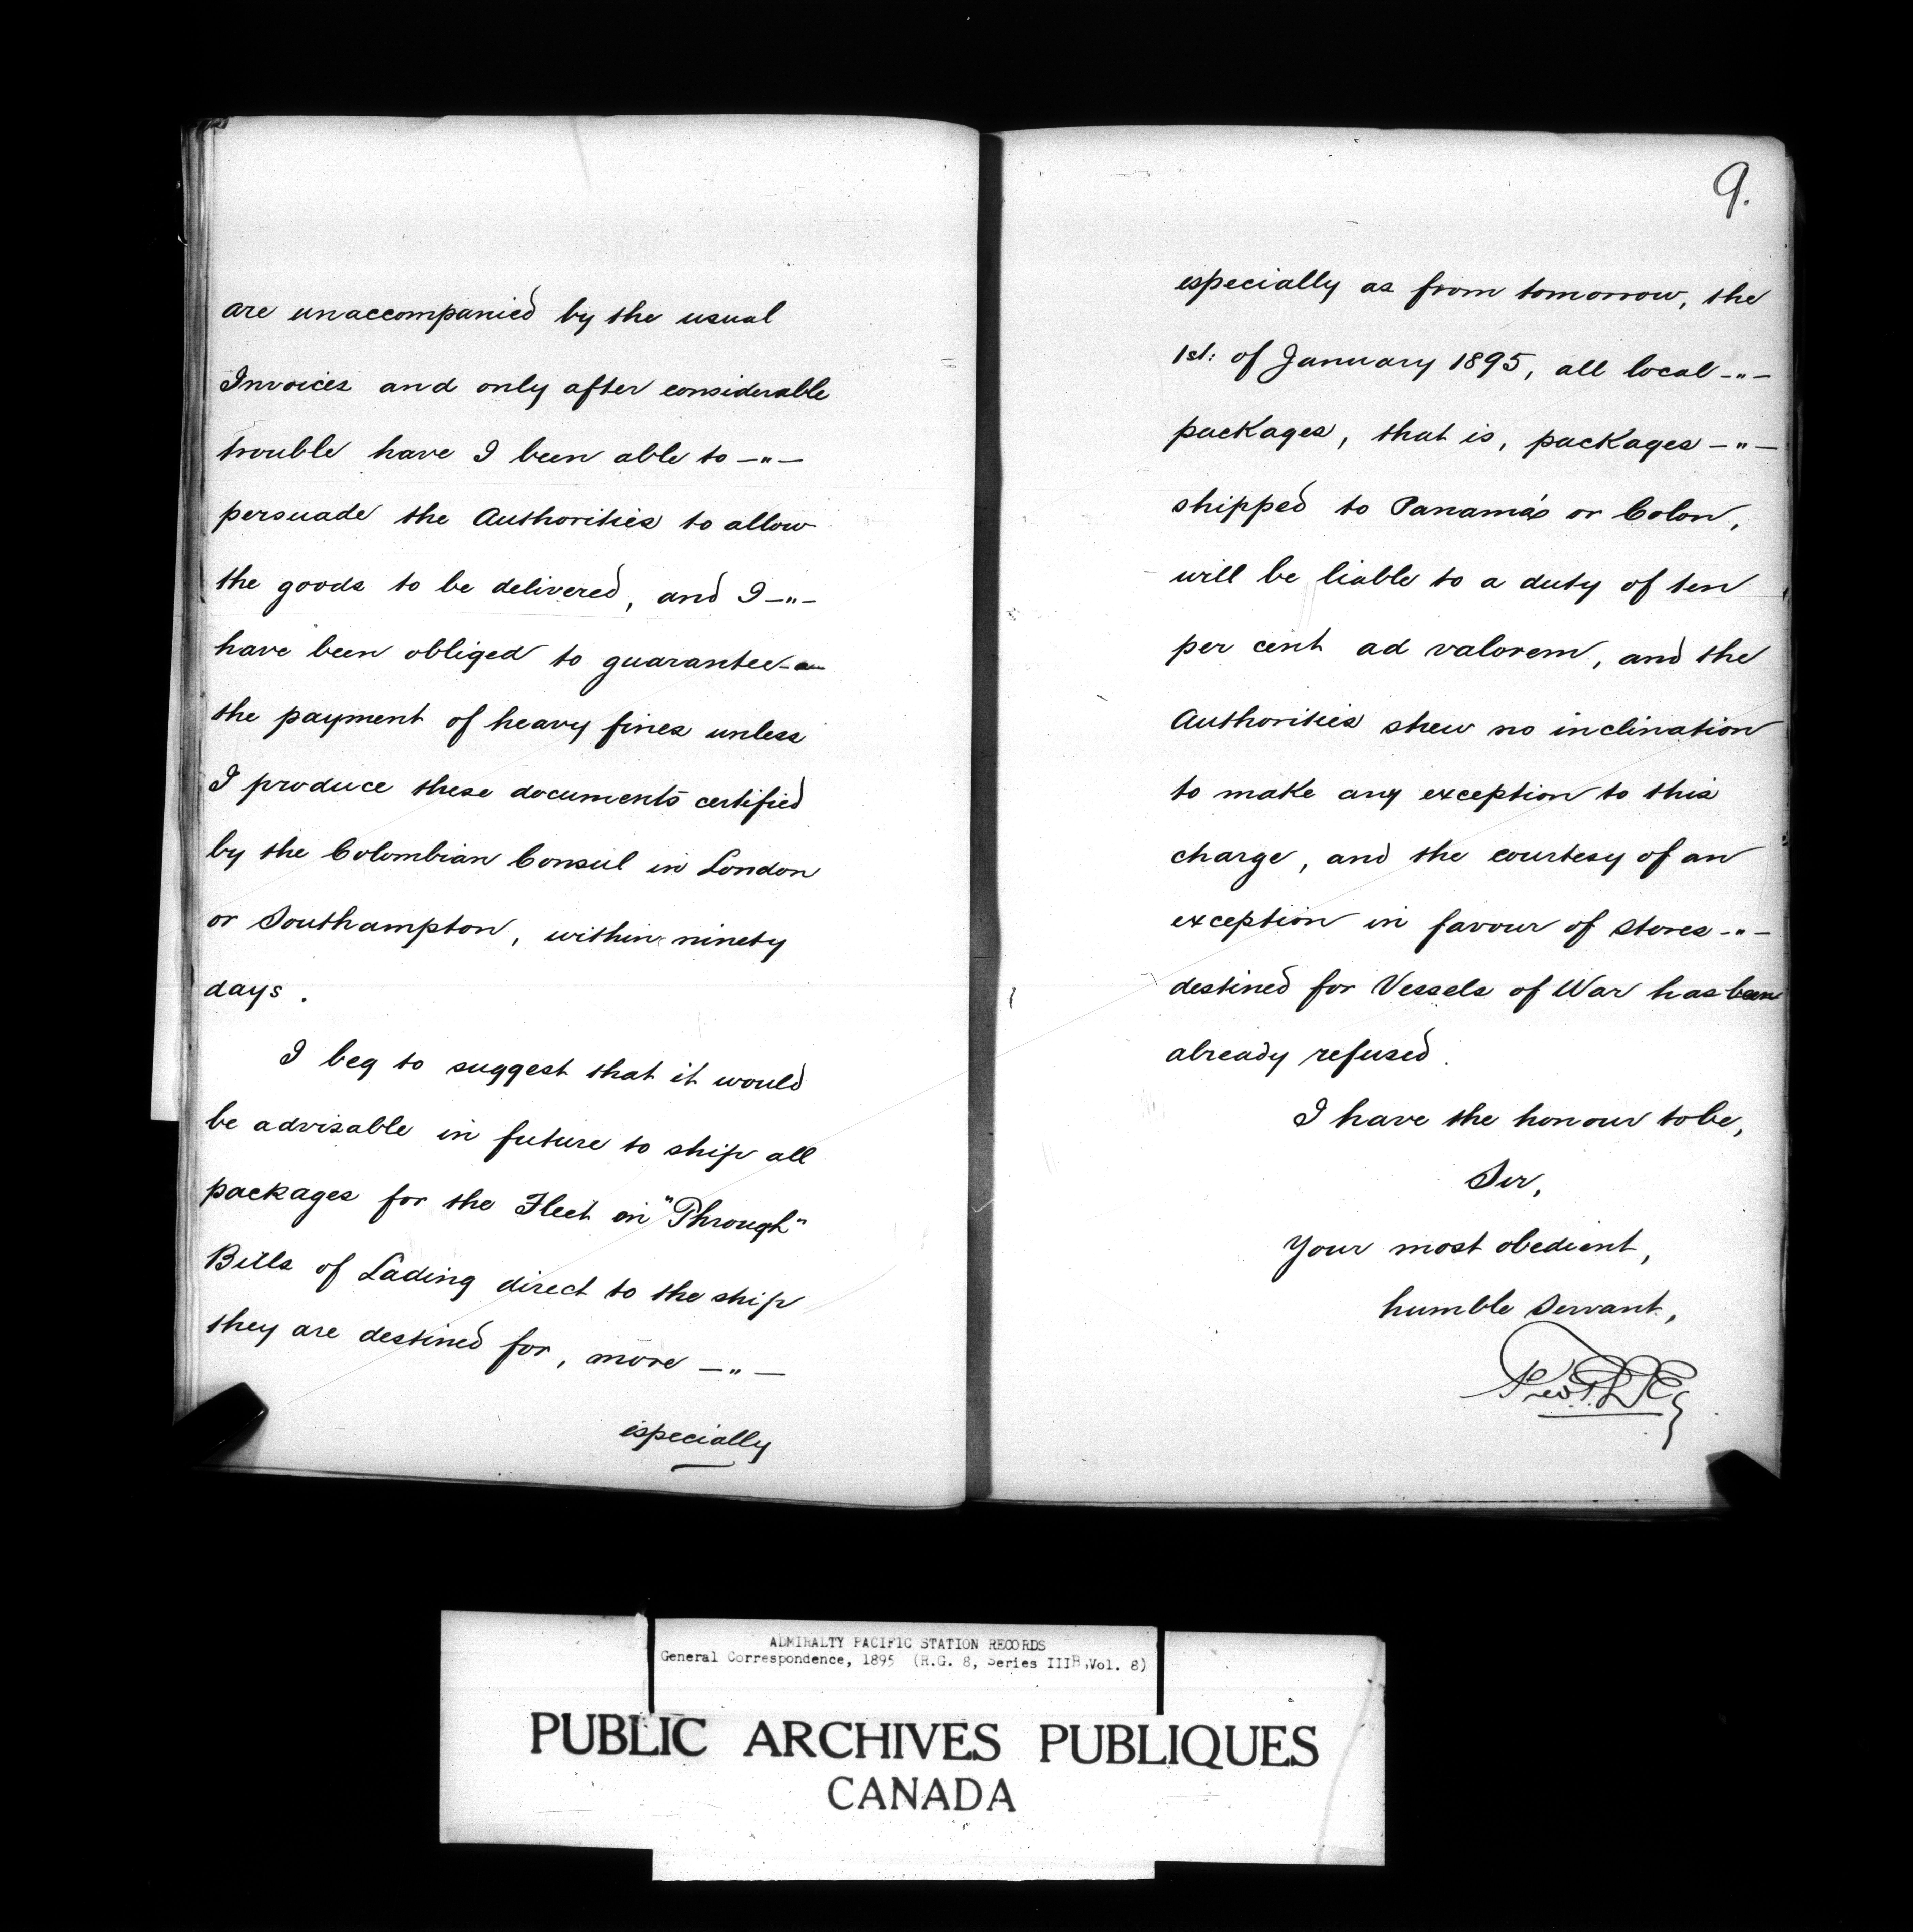 are unaccompanied by the usual
Invoices and only after considerable
trouble have I been able to —"—
persuade the Authorities to allow
the goods to be delivered, and I —"—
have been obliged to guarantee
the payment of heavy fines unless
I produce these documents certified
by the Colombian Consul in London
or Southampton, within ninety
days.
I beg to suggest that it would
be advisable in future to ship all
packages for the Fleet on "Through"
Bills of Lading direct to the ship
they are destined for, more —"—
especially
9.
especially as from tomorrow, the
1st: of January 1895, all local —"—
packages, that is, packages —"—
shipped to Panamá or Colon,
will be liable to a duty of ten
per cent ad valorem, and the
Authorities shew no inclination
to make any exception to this
charge, and the courtesy of an
exception in favour of stores —"—
destined for Vessels of War has been
already refused.
I have the honour to be,
Sir,
Your most obedient,
humble Servant,
ADMIRALTY PACIFIC STATION RECORDS
General Correspondence, 1895 (R.G. 8, Series IIIB, Vol. 8)
PUBLIC ARCHIVES PUBLIQUES
CANADA